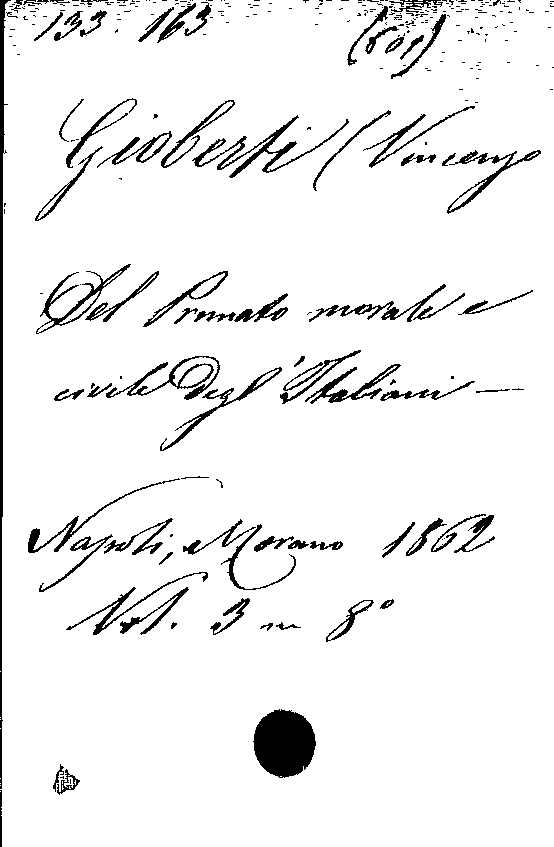 133. 163 (801)
Gioberti (Vincenzo
Del Primato morale e
civile degl'Italiani —
Napoli, Morano 1862
Vol. 3 in 8°